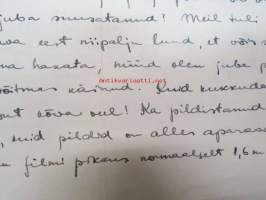 juba suusatanud! Meil tuli
eest niipalju lund, et võis s
hakata, nüüd olen juba p
võitmas käinud. Kuid kukkuda
nõva veel! Ka pildistanud
, kuid pildid on alles aparaa
filmi pikkus normaalselt 1,6 m
Antikvariaatti.net